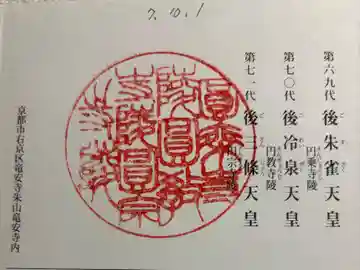 7.10.1
第六九代 後朱雀天皇
円乗寺陵
第七〇代 後冷泉天皇
円教寺陵
第七一代 後三條天皇
円宗寺陵
圓乗寺
陵圓教
寺陵圓宗
寺陵
京都市右京区竜安寺朱山竜安寺内